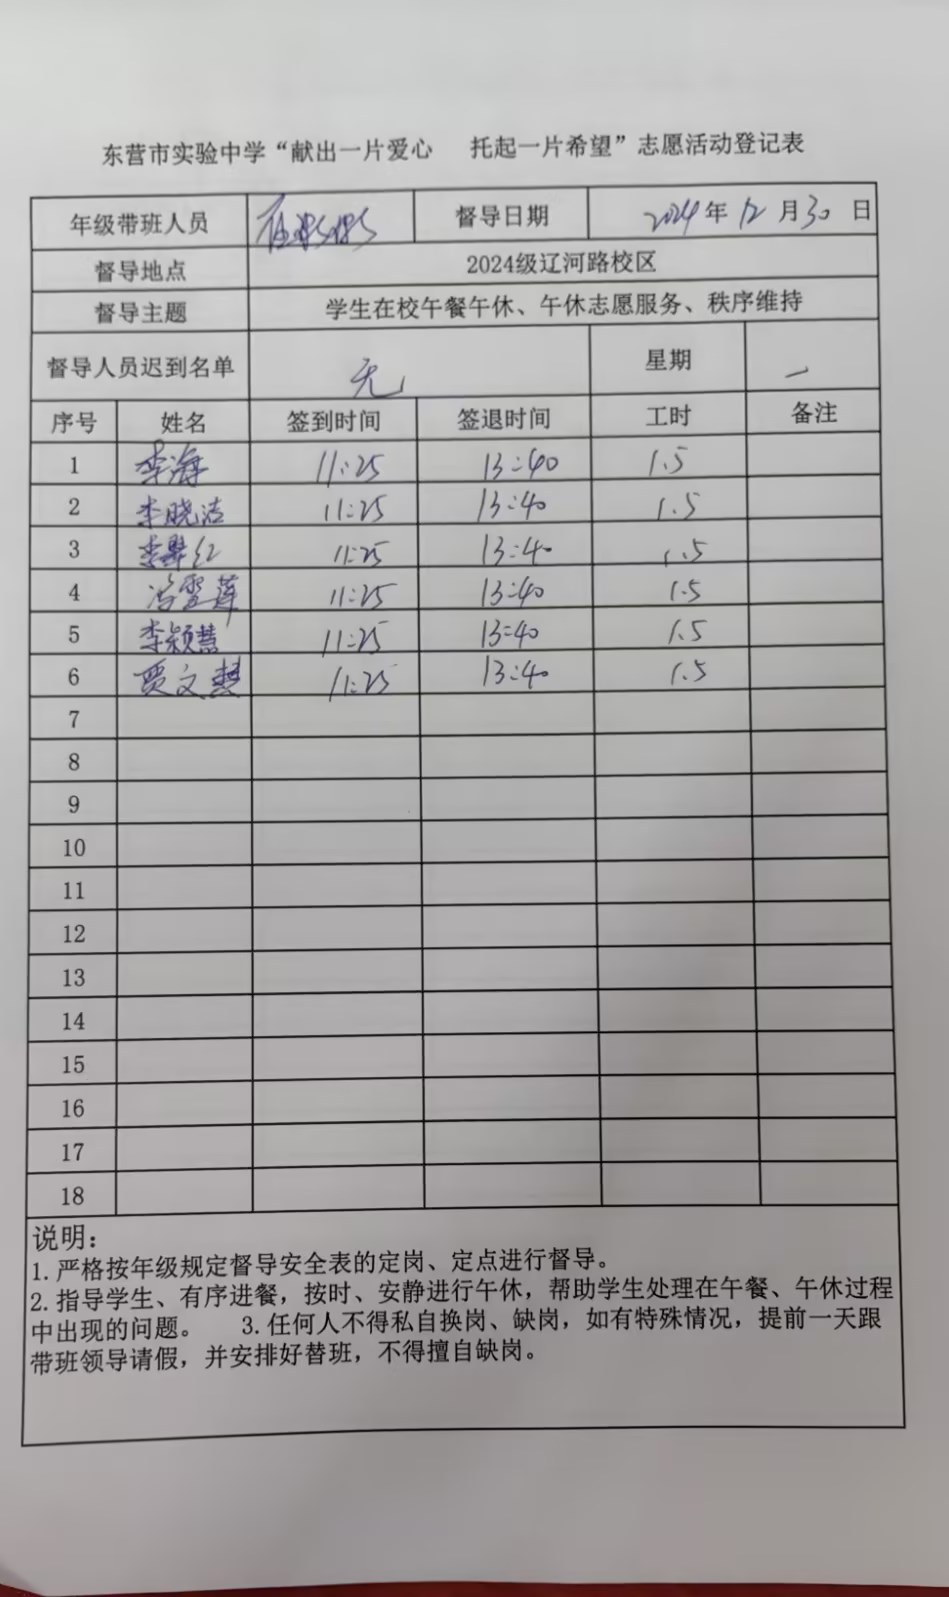 东营市实验中学“献出一片爱心 托起一片希望”志愿活动登记表
年级带班人员 督导日期 2024年12月30日
督导地点 2024级辽河路校区
督导主题 学生在校午餐午休、午休志愿服务、秩序维持
督导人员迟到名单 无 星期 一
序号 姓名 签到时间 签退时间 工时 备注
1 李海 11:25 13:40 1.5
2 李晓洁 11:25 13:40 1.5
3 李 红 11:25 13:40 1.5
4 冯雪莲 11:25 13:40 1.5
5 李颖慧 11:25 13:40 1.5
6 贾文慧 11:25 13:40 1.5
7
8
9
10
11
12
13
14
15
16
17
18
说明：
1.严格按年级规定督导安全表的定岗、定点进行督导。
2.指导学生、有序进餐，按时、安静进行午休，帮助学生处理在午餐、午休过程
中出现的问题。 3.任何人不得私自换岗、缺岗，如有特殊情况，提前一天跟
带班领导请假，并安排好替班，不得擅自缺岗。